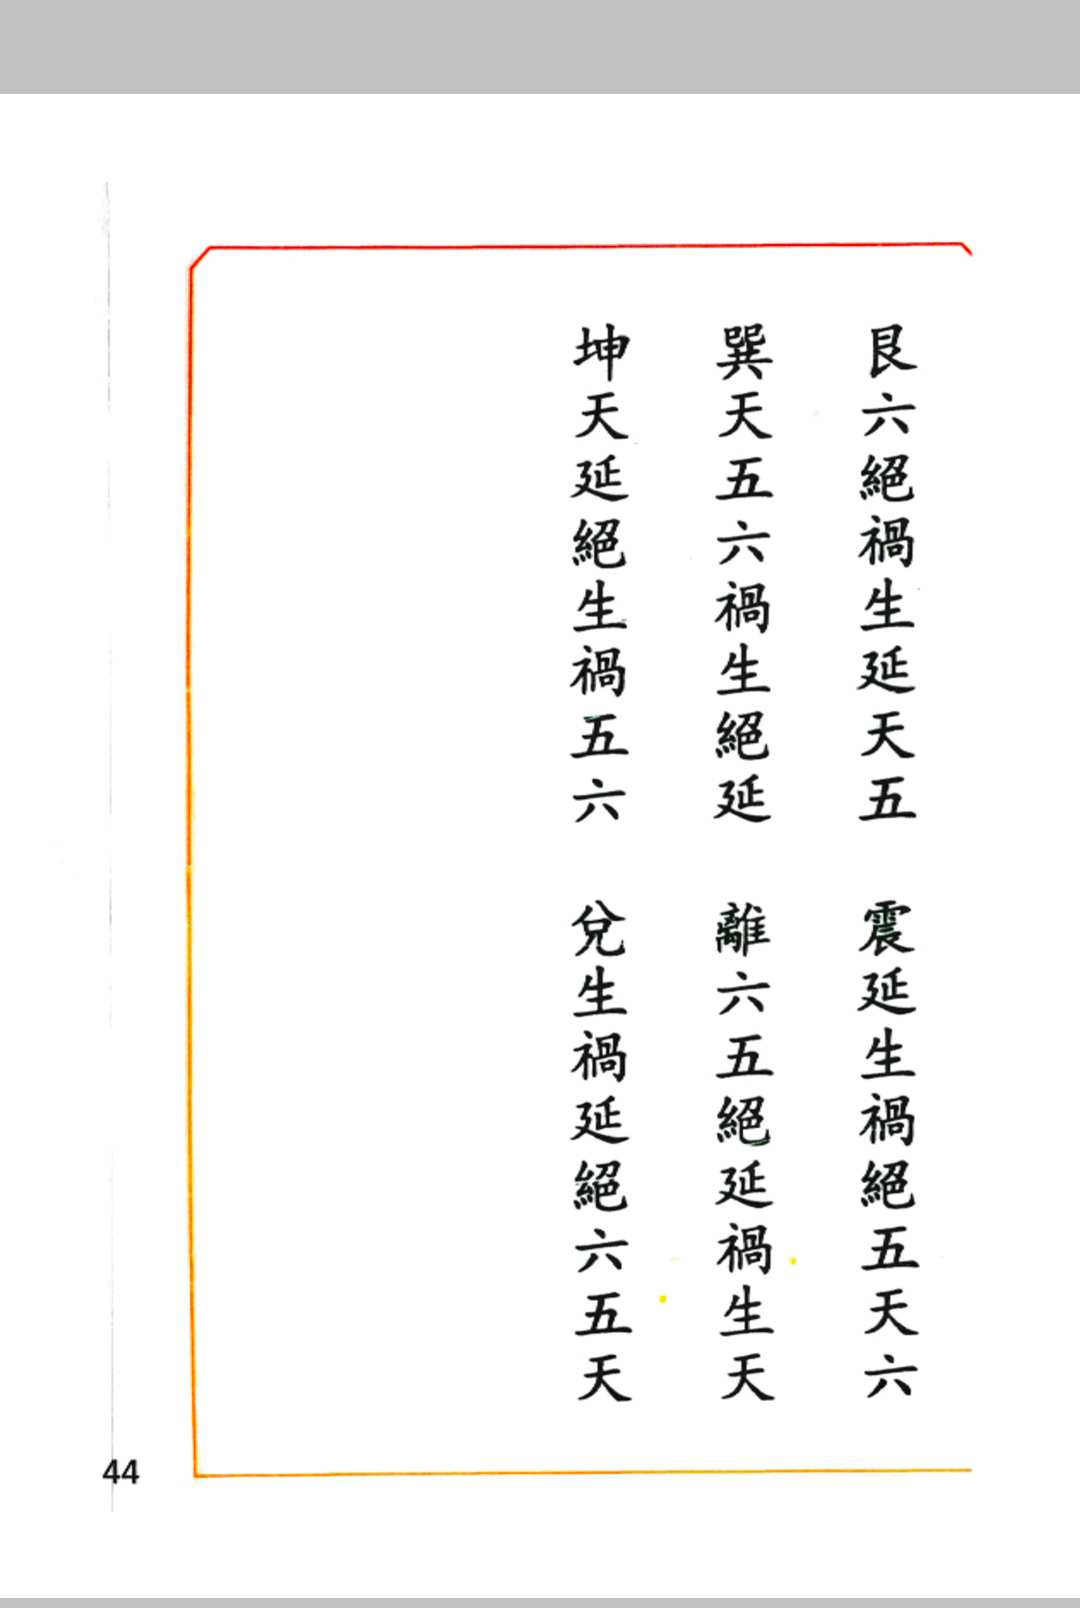 艮六絕禍生延天五　震延生禍絕五天六
巽天五六禍生絕延　離六五絕延禍生天
坤天延絕生禍五六　兌生禍延絕六五天
44